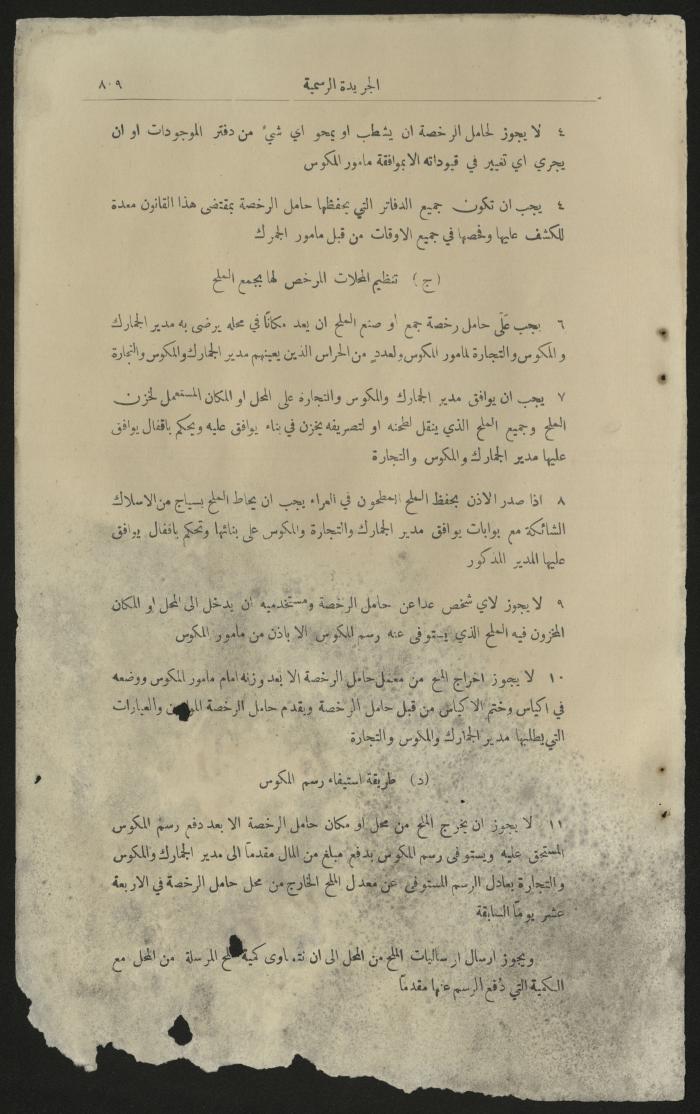 الجريدة الرسمية
٨٠٩
٤ لا يجوز لحامل الرخصة ان يشطب او يمحو اي شيء من دفتر الموجودات او ان
يجري اي تغيير في قيوداته الا بموافقة مامور المكوس
٤ يجب ان تكون جميع الدفاتر التي يحفظها حامل الرخصة بمقتضى هذا القانون معدة
للكشف عليها وفحصها في جميع الاوقات من قبل مامور الجمرك
(ج) تنظيم المحلات المرخص لها بجمع الملح
٦ يجب على حامل رخصة جمع او صنع الملح ان يعد مكانًا في محله يرضى به مدير الجمارك
والمكوس والتجارة لمامور المكوس ولعددٍ من الحراس الذين يعينهم مدير الجمارك والمكوس والتجارة
٧ يجب ان يوافق مدير الجمارك والمكوس والتجارة على المحل او المكان المستعمل لخزن
الملح وجميع الملح الذي ينقل لطحنه او لتصريفه يخزن في بناء يوافق عليه ويحكم باقفال يوافق
عليها مدير الجمارك والمكوس والتجارة
٨ اذا صدر الاذن بحفظ الملح المطحون في العراء يجب ان يحاط الملح بسياج من الاسلاك
الشائكة مع بوابات يوافق مدير الجمارك والتجارة والمكوس على بنائها وتحكم باقفال يوافق
عليها المدير المذكور
٩ لا يجوز لاي شخص عدا عن حامل الرخصة ومستخدميه ان يدخل الى المحل او المكان
المخزون فيه الملح الذي يستوفى عنه رسم المكوس الا باذن من مامور المكوس
١٠ لا يجوز اخراج الملح من معمل حامل الرخصة الا بعد وزنه امام مامور المكوس ووضعه
في اكياس وختم الاكياس من قبل حامل الرخصة ويقدم حامل الرخصة والعبارات
التي يطلبها مدير الجمارك والمكوس والتجارة
(د) طريقة استيفاء رسم المكوس
١١ لا يجوز ان يخرج الملح من محل او مكان حامل الرخصة الا بعد دفع رسم المكوس
المستحق عليه ويستوفى رسم المكوس بدفع مبلغ من المال مقدمًا الى مدير الجمارك والمكوس
والتجارة يعادل الرسم المستوفى عن معدل الملح الخارج من محل حامل الرخصة في الاربعة
عشر يومًا السابقة
ويجوز ارسال ارساليات الملح من المحل الى ان تتساوى كمية الملح المرسلة من المحل مع
الكمية التي دُفع الرسم عنها مقدمًا